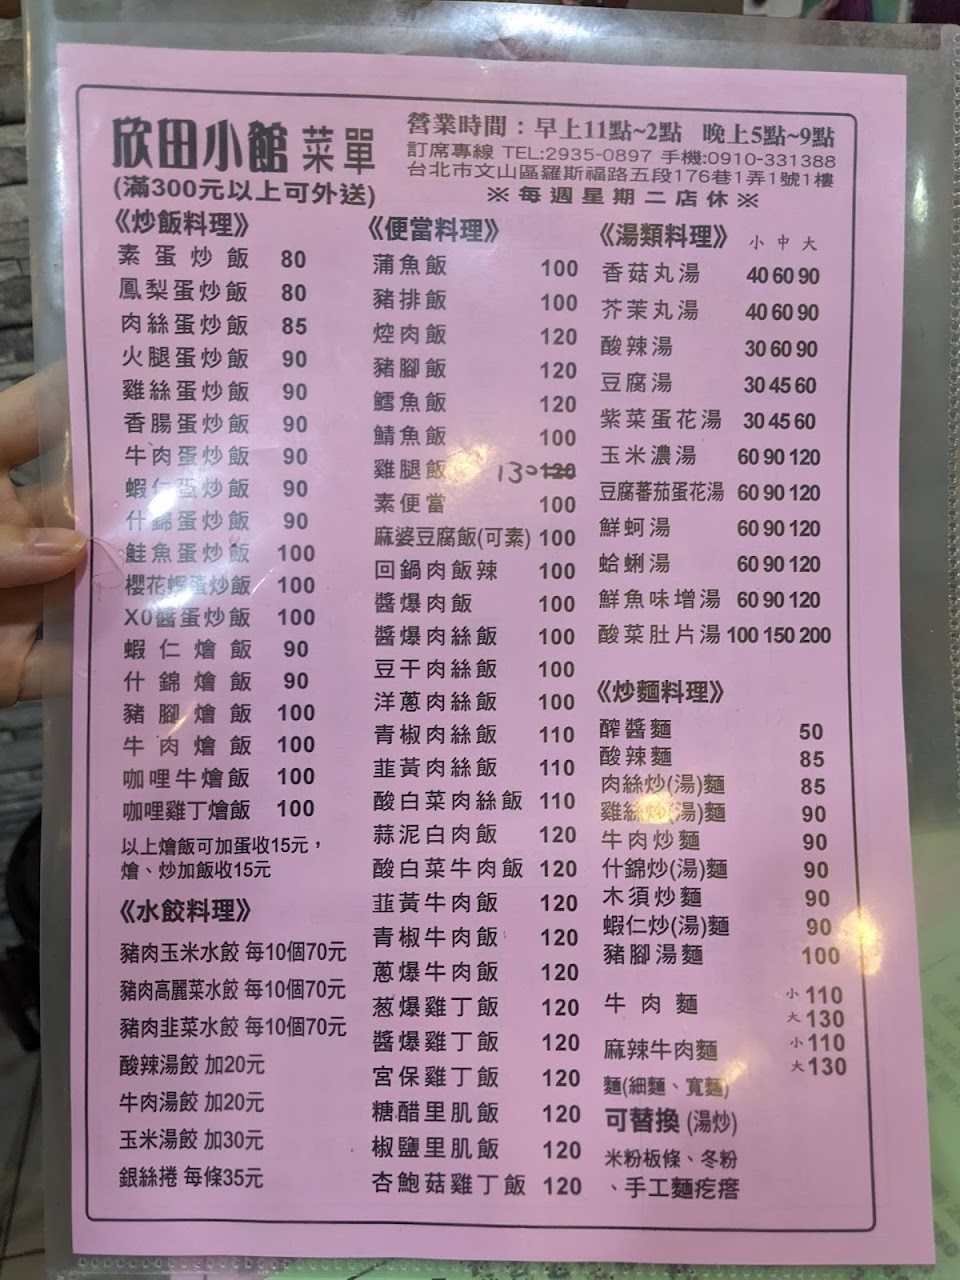 欣田小館 菜單
(滿300元以上可外送)
營業時間：早上11點~2點 晚上5點~9點
訂席專線 TEL:2935-0897 手機:0910-331388
台北市文山區羅斯福路五段176巷1弄1號1樓
※每週星期二店休※
《炒飯料理》
素蛋炒飯 80
鳳梨蛋炒飯 80
肉絲蛋炒飯 85
火腿蛋炒飯 90
雞絲蛋炒飯 90
香腸蛋炒飯 90
牛肉蛋炒飯 90
蝦仁蛋炒飯 90
什錦蛋炒飯 90
鮭魚蛋炒飯 100
櫻花蝦蛋炒飯 100
XO醬蛋炒飯 100
蝦仁燴飯 90
什錦燴飯 90
豬腳燴飯 100
牛肉燴飯 100
咖哩牛燴飯 100
咖哩雞丁燴飯 100
以上燴飯可加蛋收15元，
燴、炒加飯收15元
《水餃料理》
豬肉玉米水餃 每10個70元
豬肉高麗菜水餃 每10個70元
豬肉韭菜水餃 每10個70元
酸辣湯餃 加20元
牛肉湯餃 加20元
玉米湯餃 加30元
銀絲捲 每條35元
《便當料理》
蒲魚飯 100
豬排飯 100
焢肉飯 120
豬腳飯 120
鱈魚飯 120
鯖魚飯 100
雞腿飯 130 120
素便當 100
麻婆豆腐飯(可素) 100
回鍋肉飯辣 100
醬爆肉飯 100
醬爆肉絲飯 100
豆干肉絲飯 100
洋蔥肉絲飯 100
青椒肉絲飯 110
韮黃肉絲飯 110
酸白菜肉絲飯 110
蒜泥白肉飯 120
酸白菜牛肉飯 120
韮黃牛肉飯 120
青椒牛肉飯 120
蔥爆牛肉飯 120
葱爆雞丁飯 120
醬爆雞丁飯 120
宮保雞丁飯 120
糖醋里肌飯 120
椒鹽里肌飯 120
杏鮑菇雞丁飯 120
《湯類料理》 小 中 大
香菇丸湯 40 60 90
芥茉丸湯 40 60 90
酸辣湯 30 60 90
豆腐湯 30 45 60
紫菜蛋花湯 30 45 60
玉米濃湯 60 90 120
豆腐蕃茄蛋花湯 60 90 120
鮮蚵湯 60 90 120
蛤蜊湯 60 90 120
鮮魚味增湯 60 90 120
酸菜肚片湯 100 150 200
《炒麵料理》
醡醬麵 50
酸辣麵 85
肉絲炒(湯)麵 85
雞絲炒(湯)麵 90
牛肉炒麵 90
什錦炒(湯)麵 90
木須炒麵 90
蝦仁炒(湯)麵 90
豬腳湯麵 100
牛肉麵 小110
大130
麻辣牛肉麵 小110
大130
麵(細麵、寬麵)
可替換(湯炒)
米粉板條、冬粉
、手工麵疙瘩